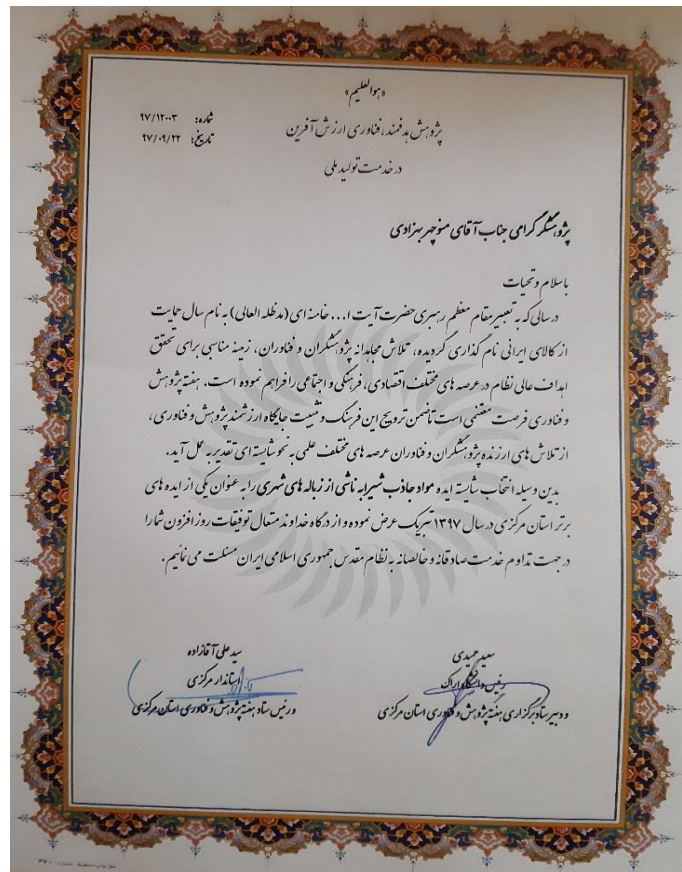 «هوالعلیم»
شماره: ۹۷/۱۲۰۰۳
پژوهش هدفمند، فناوری ارزش آفرین
تاریخ: ۹۷/۰۹/۲۲
در خدمت تولید ملی
پژوهشگر گرامی جناب آقای منوچهر بهزادی
با سلام و تحیات
در سالی که به تعبیر مقام معظم رهبری حضرت آیت ا... خامنه ای (مدظله العالی) به نام سال حمایت
از کالای ایرانی نام گذاری گردیده، تلاش مجاهدانه پژوهشگران و فناوران، زمینه مناسبی برای تحقق
اهداف عالی نظام در عرصه های مختلف اقتصادی، فرهنگی و اجتماعی را فراهم نموده است. هفته پژوهش
و فناوری فرصت مغتنمی است تا ضمن ترویج این فرهنگ و تثبیت جایگاه ارزشمند پژوهش و فناوری،
از تلاش های ارزنده پژوهشگران و فناوران عرصه های مختلف علمی به نحو شایسته ای تقدیر به عمل آید.
بدین وسیله انتخاب شایسته ایده مواد جاذب شیرابه ناشی از زباله های شهری را به عنوان یکی از ایده های
برتر استان مرکزی در سال ۱۳۹۷ تبریک عرض نموده و از درگاه خداوند متعال توفیقات روزافزون شما را
در جهت تداوم خدمت صادقانه و خالصانه به نظام مقدس جمهوری اسلامی ایران مسئلت می نمائیم.
سعید حمیدی
رئیس دانشگاه اراک
و دبیر ستاد برگزاری هفته پژوهش و فناوری استان مرکزی
سید علی آقازاده
استاندار مرکزی
و رئیس ستاد هفته پژوهش و فناوری استان مرکزی